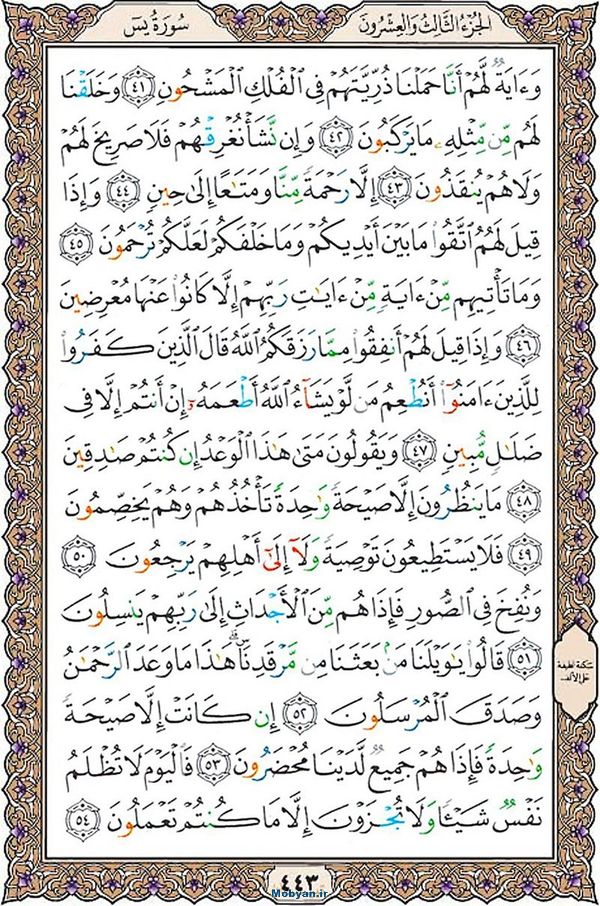 الجزء الثالث والعشرون
سورة يس
وَءَايَةٌ لَّهُمْ أَنَّا حَمَلْنَا ذُرِّيَّتَهُمْ فِي الْفُلْكِ الْمَشْحُونِ ٤١ وَخَلَقْنَا
لَهُم مِّن مِّثْلِهِ مَا يَرْكَبُونَ ٤٢ وَإِن نَّشَأْ نُغْرِقْهُمْ فَلَا صَرِيخَ لَهُمْ
وَلَا هُمْ يُنقَذُونَ ٤٣ إِلَّا رَحْمَةً مِّنَّا وَمَتَٰعًا إِلَىٰ حِينٍ ٤٤ وَإِذَا
قِيلَ لَهُمُ اتَّقُوا مَا بَيْنَ أَيْدِيكُمْ وَمَا خَلْفَكُمْ لَعَلَّكُمْ تُرْحَمُونَ ٤٥
وَمَا تَأْتِيهِم مِّنْ ءَايَةٍ مِّنْ ءَايَٰتِ رَبِّهِمْ إِلَّا كَانُوا عَنْهَا مُعْرِضِينَ
٤٦ وَإِذَا قِيلَ لَهُمْ أَنفِقُوا مِمَّا رَزَقَكُمُ اللَّهُ قَالَ الَّذِينَ كَفَرُوا
لِلَّذِينَ ءَامَنُوا أَنُطْعِمُ مَن لَّوْ يَشَاءُ اللَّهُ أَطْعَمَهُ إِنْ أَنتُمْ إِلَّا فِي
ضَلَٰلٍ مُّبِينٍ ٤٧ وَيَقُولُونَ مَتَىٰ هَٰذَا الْوَعْدُ إِن كُنتُمْ صَٰدِقِينَ
٤٨ مَا يَنظُرُونَ إِلَّا صَيْحَةً وَٰحِدَةً تَأْخُذُهُمْ وَهُمْ يَخِصِّمُونَ
٤٩ فَلَا يَسْتَطِيعُونَ تَوْصِيَةً وَلَا إِلَىٰ أَهْلِهِمْ يَرْجِعُونَ ٥٠
وَنُفِخَ فِي الصُّورِ فَإِذَا هُم مِّنَ الْأَجْدَاثِ إِلَىٰ رَبِّهِمْ يَنسِلُونَ
٥١ قَالُوا يَٰوَيْلَنَا مَن بَعَثَنَا مِن مَّرْقَدِنَا هَٰذَا مَا وَعَدَ الرَّحْمَٰنُ
وَصَدَقَ الْمُرْسَلُونَ ٥٢ إِن كَانَتْ إِلَّا صَيْحَةً
وَٰحِدَةً فَإِذَا هُمْ جَمِيعٌ لَّدَيْنَا مُحْضَرُونَ ٥٣ فَالْيَوْمَ لَا تُظْلَمُ
نَفْسٌ شَيْئًا وَلَا تُجْزَوْنَ إِلَّا مَا كُنتُمْ تَعْمَلُونَ ٥٤
سكتة لطيفة
على الألف
٤٤٣
Mobyan.ir